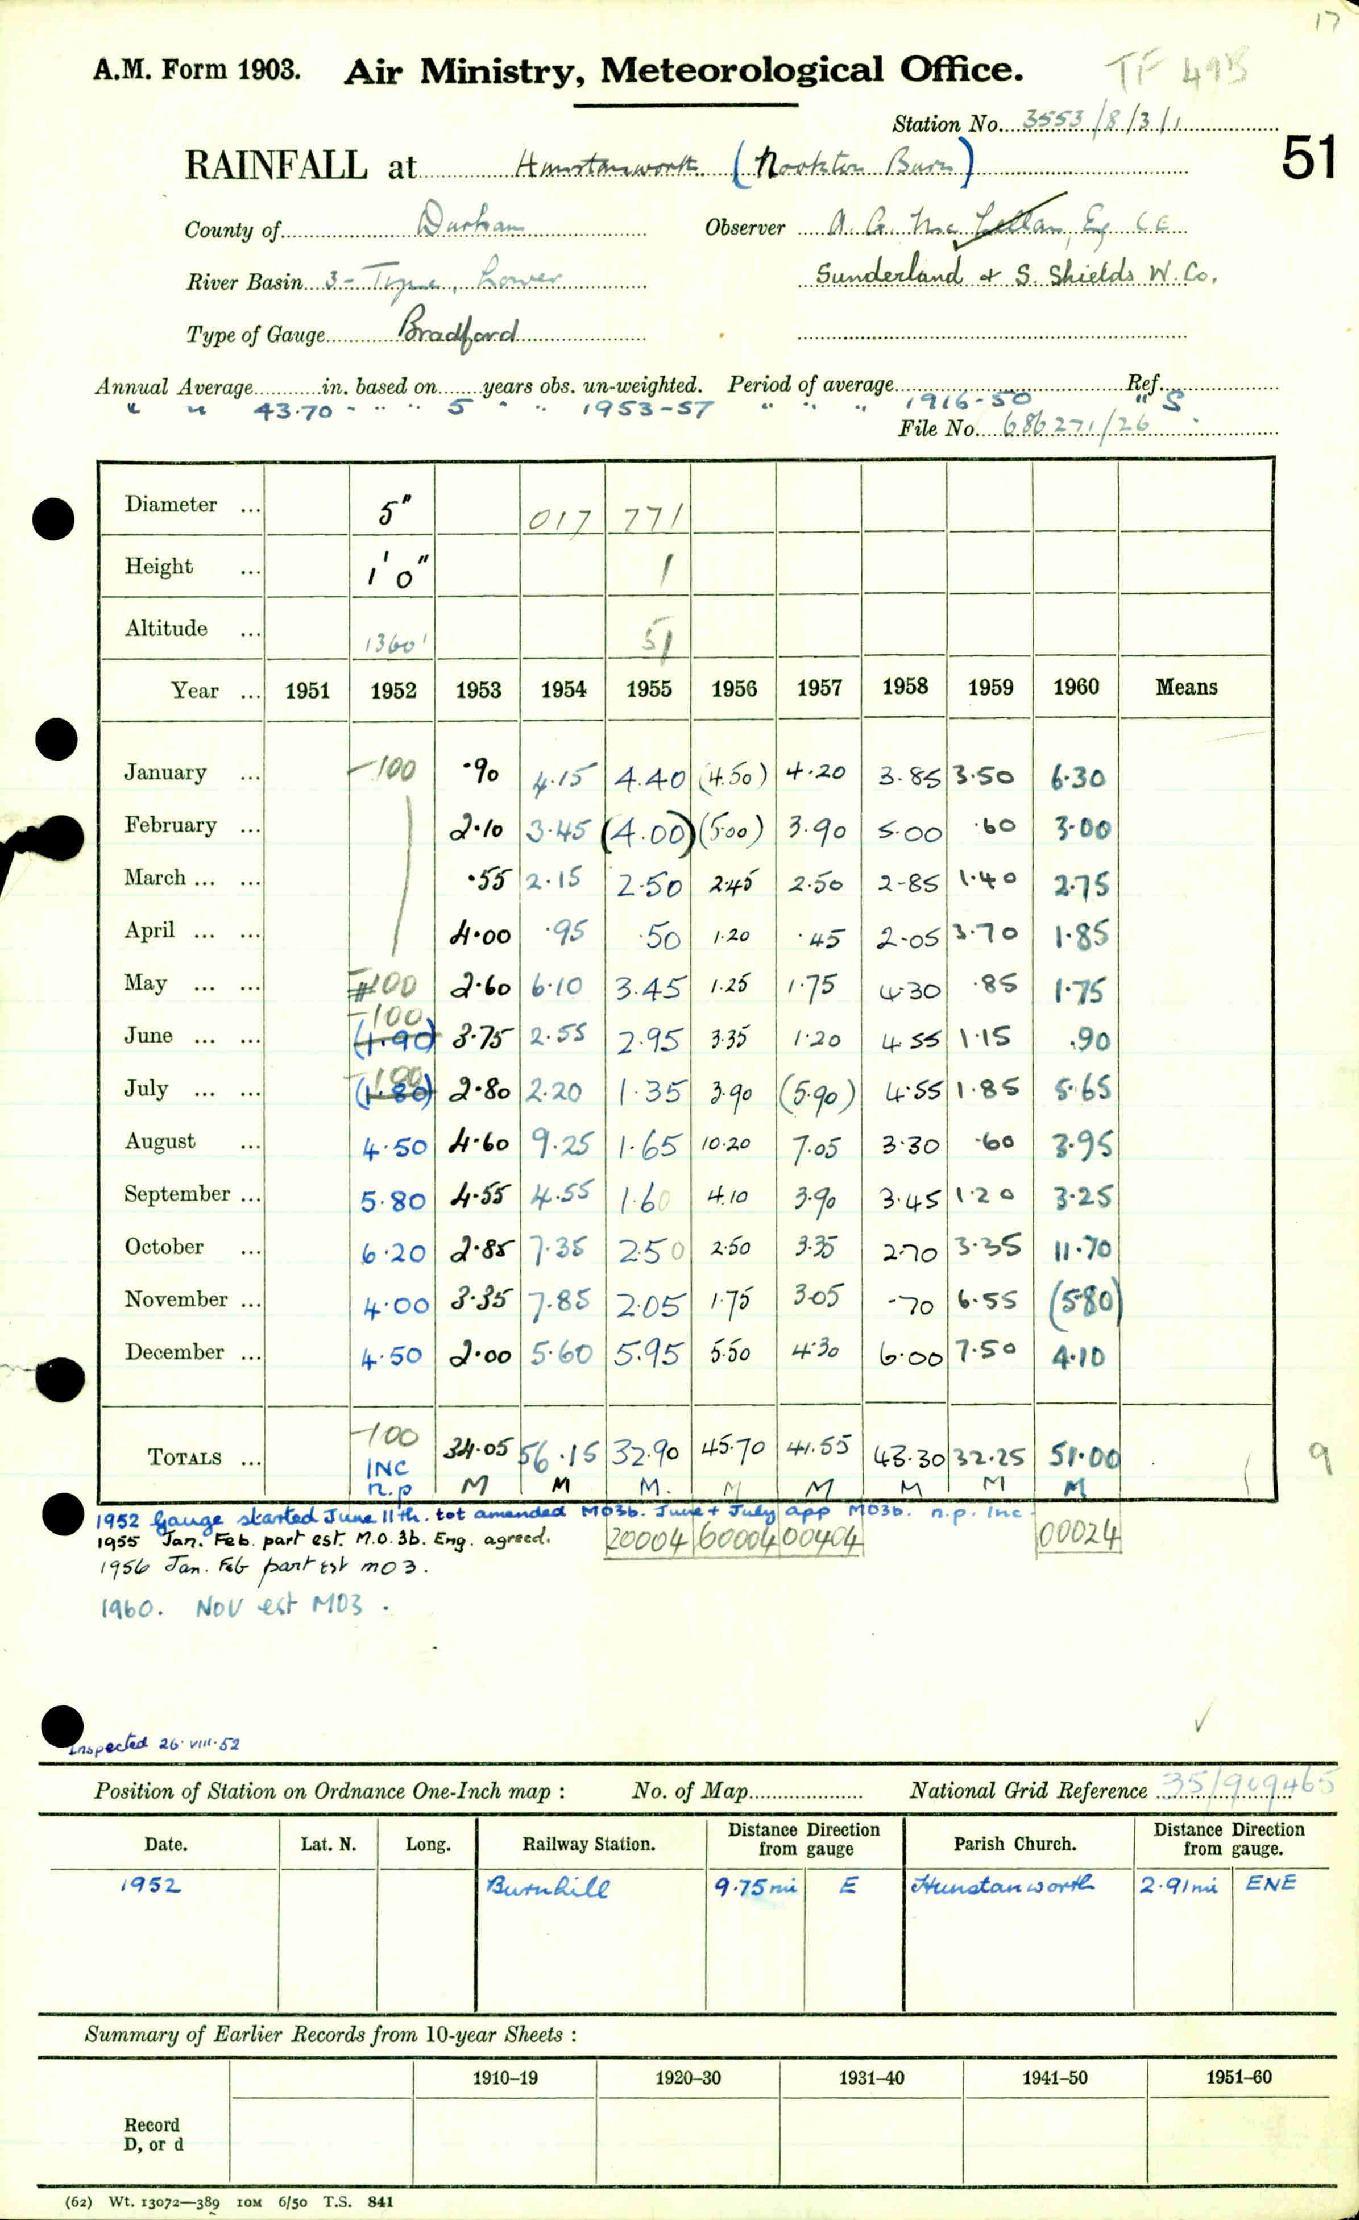 17
A.M. Form 1903. Air Ministry, Meteorological Office. TF 49B
Station No. 3553/8/3/1
51
RAINFALL at Hunstanworth (Nookton Burn)
County of Durham Observer A. G. McLellan, Esq CE
River Basin 3 - Tyne, Lower Sunderland & S. Shields W. Co.
Type of Gauge Bradford
Annual Average in. based on years obs. un-weighted. Period of average Ref.
" " 43.70 - " " 5 " " 1953-57 " " " 1916-50 " S
File No. 686271/26
Diameter ... 5" 017 771
Height ... 1'0" 1
Altitude ... 1360' 51
Year ... 1951 1952 1953 1954 1955 1956 1957 1958 1959 1960 Means
January ... -100 .90 4.15 4.40 (4.50) 4.20 3.85 3.50 6.30
February ... 2.10 3.45 (4.00) (5.00) 3.90 5.00 .60 3.00
March ... ... .55 2.15 2.50 2.45 2.50 2.85 1.40 2.75
April ... ... 4.00 .95 .50 1.20 .45 2.05 3.70 1.85
May ... ... -100 2.60 6.10 3.45 1.25 1.75 4.30 .85 1.75
June ... ... -100 (1.90) 3.75 2.55 2.95 3.35 1.20 4.55 1.15 .90
July ... ... -100 (1.80) 2.80 2.20 1.35 3.90 (5.90) 4.55 1.85 5.65
August ... 4.50 4.60 9.25 1.65 10.20 7.05 3.30 .60 3.95
September ... 5.80 4.55 4.55 1.60 4.10 3.90 3.45 1.20 3.25
October ... 6.20 2.85 7.35 2.50 2.50 3.35 2.70 3.35 11.70
November ... 4.00 3.35 7.85 2.05 1.75 3.05 .70 6.55 (5.80)
December ... 4.50 2.00 5.60 5.95 5.50 4.30 6.00 7.50 4.10
TOTALS ... -100 34.05 56.15 32.90 45.70 41.55 43.30 32.25 51.00 9
INC
n.p M M M. M M M M M
1952 Gauge started June 11th. tot amended M03b. June + July app M03b. n.p. Inc.
1955 Jan. Feb. part est. M.O. 3b. Eng. agreed. 20004 60004 00404 00024
1956 Jan. Feb part est M03.
1960. NOV est M03.
Inspected 26.VIII.52
Position of Station on Ordnance One-Inch map : No. of Map National Grid Reference 35/909465
Date. Lat. N. Long. Railway Station. Distance Direction from gauge Parish Church. Distance Direction from gauge.
1952 Burnhill 9.75mi E Hunstanworth 2.91mi ENE
Summary of Earlier Records from 10-year Sheets :
1910–19 1920–30 1931–40 1941–50 1951–60
Record
D, or d
(62) Wt. 13072—389 10M 6/50 T.S. 841